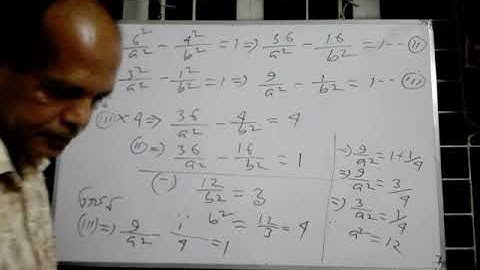 6²/a² - 4²/b² = 1 ⇒ 36/a² - 16/b² = 1 -- (ii)
3²/a² - 1²/b² = 1 ⇒ 9/a² - 1/b² = 1 -- (iii)
(iii) × 4 ⇒ 36/a² - 4/b² = 4
(ii) ⇒) 36/a² - 16/b² = 1
(-) 12/b² = 3
∵ b² = 12/3 = 4
(iii) ⇒) 9/a² - 1/4 = 1
⇒) 9/a² = 1 + 1/4
⇒) 9/a² = 3/4
⇒) 3/a² = 1/4
∵ a² = 12